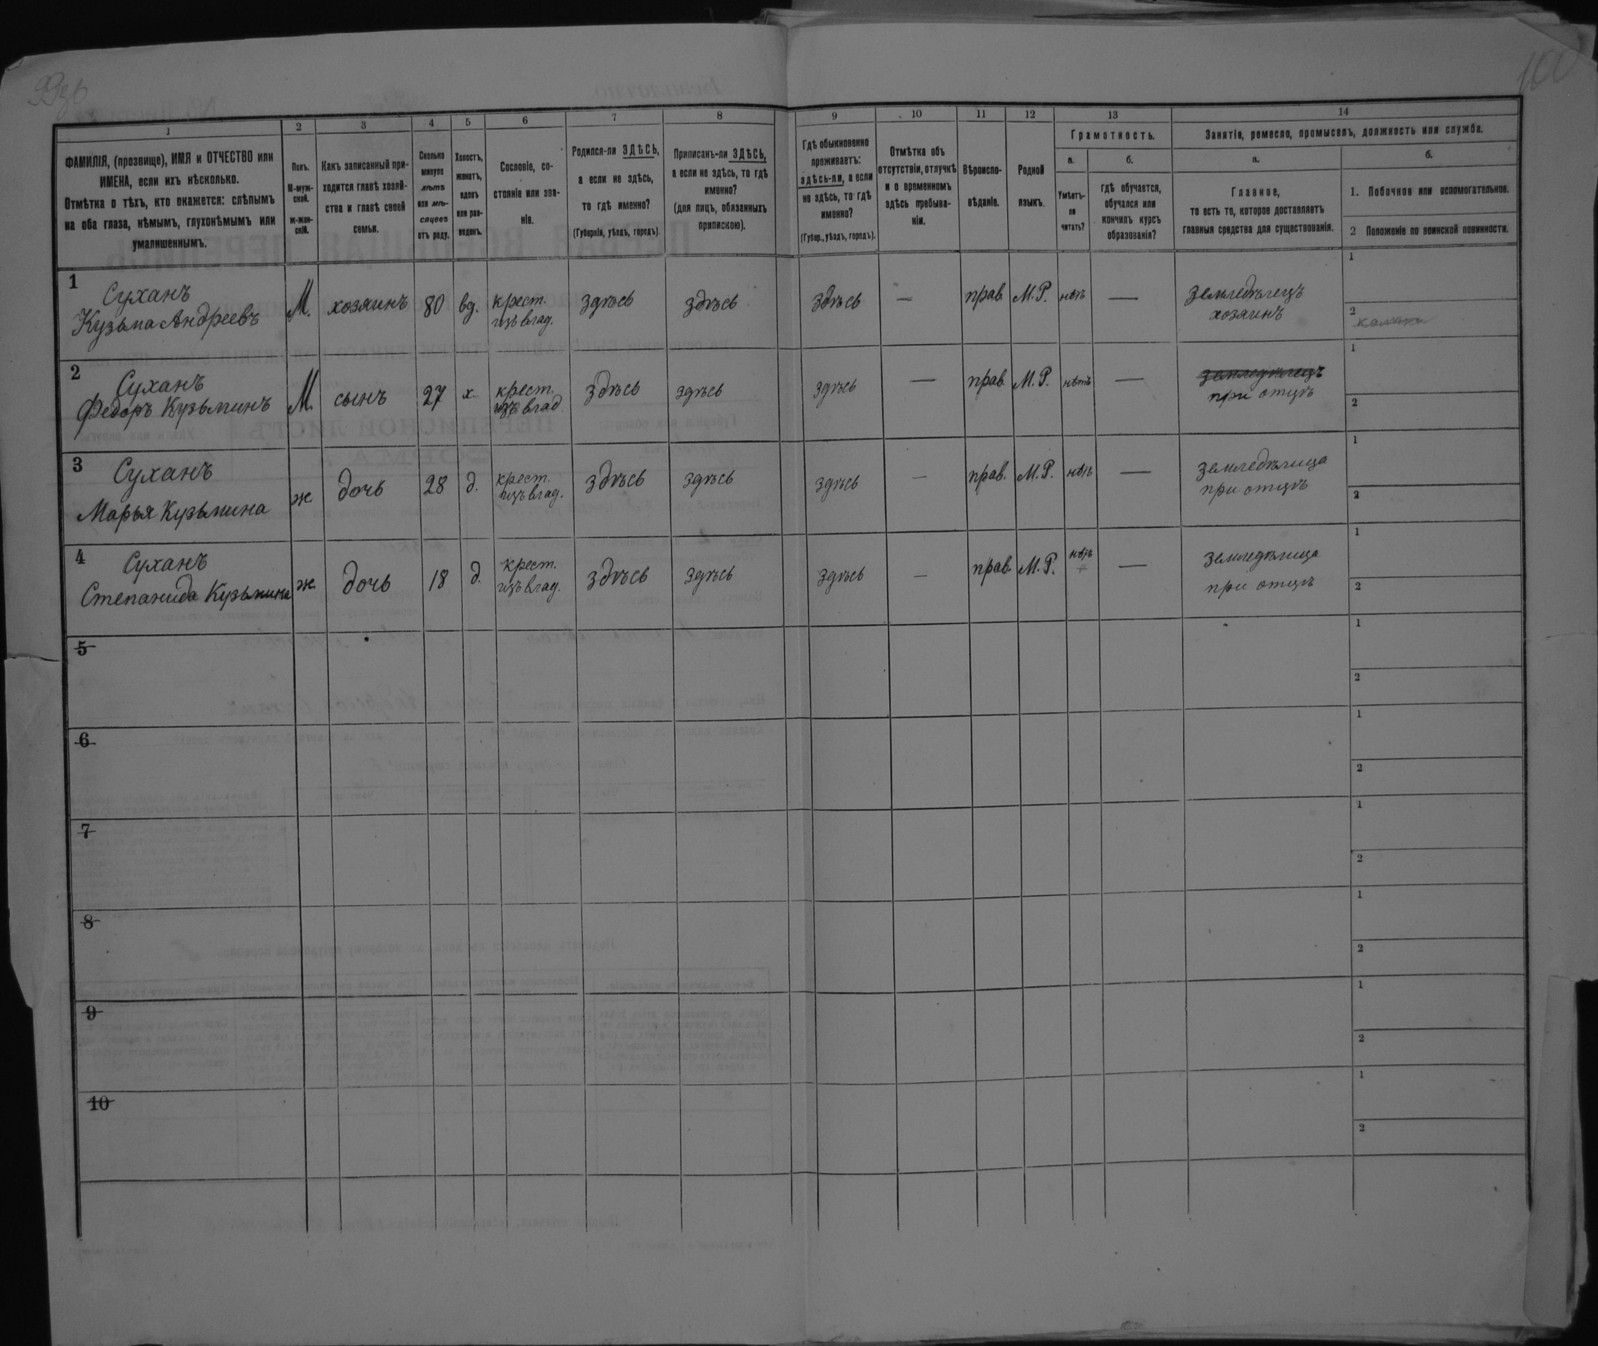 99об
100
1 2 3 4 5 6 7 8 9 10 11 12 13 14
ФАМИЛІЯ, (прозвище), ИМЯ и ОТЧЕСТВО или
ИМЕНА, если ихъ нѣсколько.
Отмѣтка о тѣхъ, кто окажется: слѣпымъ
на оба глаза, нѣмымъ, глухонѣмымъ или
умалишеннымъ.
Полъ.
М-муж-
ской.
ж-жен-
скій.
Какъ записанный при-
ходится главѣ хозяй-
ства и главѣ своей
семьи.
Сколько
минуло
лѣтъ
или мѣ-
сяцевъ
отъ роду.
Холостъ,
женатъ,
вдовъ
или раз-
веденъ.
Сословіе, со-
стояніе или зва-
ніе.
Родился-ли ЗДѢСЬ,
а если не здѣсь,
то гдѣ именно?
(Губернія, уѣздъ, городъ).
Приписанъ-ли ЗДѢСЬ,
а если не здѣсь, то гдѣ
именно?
(для лицъ, обязанныхъ
припискою).
Гдѣ обыкновенно
проживаетъ:
здѣсь-ли, а если
не здѣсь, то гдѣ
именно?
(Губер., уѣздъ, городъ).
Отмѣтка объ
отсутствіи, отлучкѣ
и о временномъ
здѣсь пребыва-
ніи.
Вѣроиспо-
вѣданіе.
Родной
языкъ.
Грамотность.
а.
Умѣетъ-
ли
читать?
б.
гдѣ обучается,
обучался или
кончилъ курсъ
образованія?
Занятіе, ремесло, промыселъ, должность или служба.
а.
Главное,
то есть то, которое доставляетъ
главныя средства для существованія.
б.
1. Побочное или вспомогательное.
2 Положеніе по воинской повинности.
1 Суханъ
Кузьма Андреевъ М. хозяинъ 80 вд. крест.
изъ влад. здѣсь здѣсь здѣсь — прав. М.Р. нѣтъ — земледѣлецъ
хозяинъ 1
2
2 Суханъ
Федоръ Кузьминъ М. сынъ 27 х. крест.
изъ влад здѣсь здѣсь здѣсь — прав. М.Р. нѣтъ — земледѣлецъ
при отцѣ 1
2
3 Суханъ
Марья Кузьмина ж дочь 28 д. крест.
изъ влад. здѣсь здѣсь здѣсь — прав. М.Р. нѣтъ — земледѣлица
при отцѣ 1
2
4 Суханъ
Степанида Кузьмина ж. дочь 18 д. крест.
изъ влад. здѣсь здѣсь здѣсь — прав. М.Р. нѣтъ — земледѣлица
при отцѣ 1
2
5 1
2
6 1
2
7 1
2
8 1
2
9 1
2
10 1
2